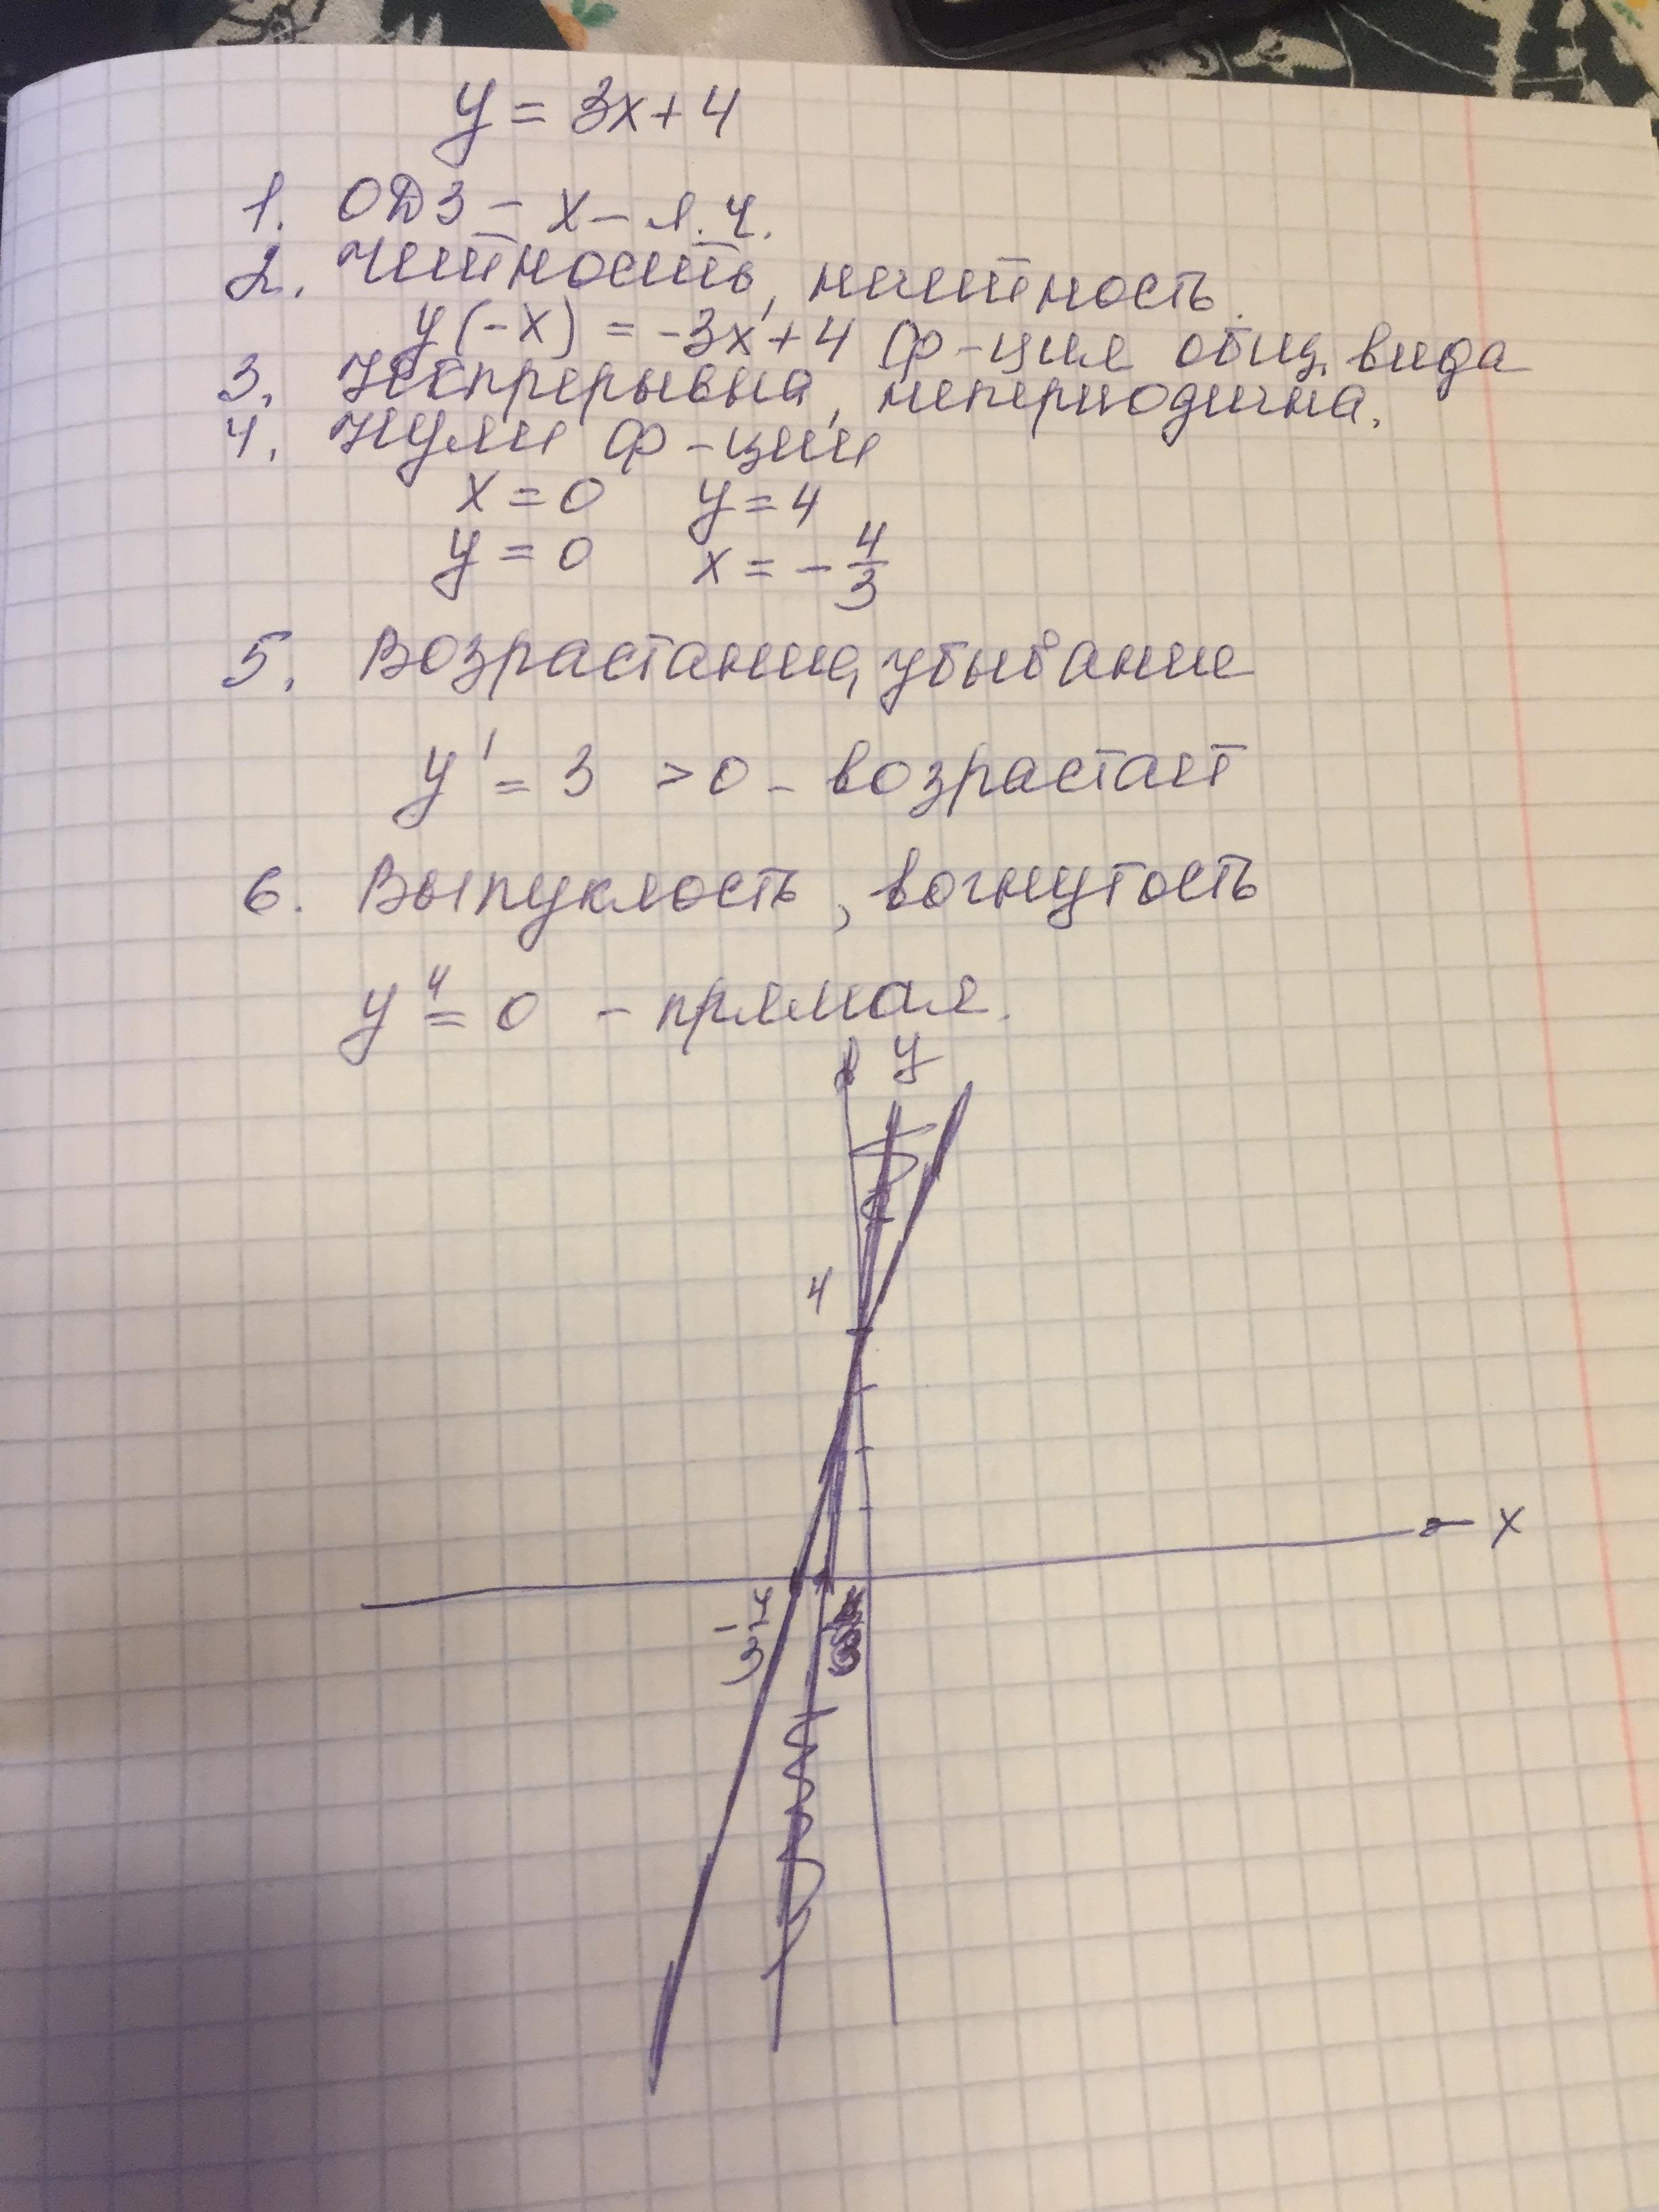 y = 3x + 4
1. ОДЗ – x – л.ч.
2. Чётность, нечётность.
y(-x) = -3x + 4 Ф-ция общ. вида
3. Непрерывна, непериодична.
4. Нули ф-ции
x = 0 y = 4
y = 0 x = - 4/3
5. Возрастание, убывание
y' = 3 > 0 - возрастает
6. Выпуклость, вогнутость
y'' = 0 - прямая.
y
4
x
- 4/3